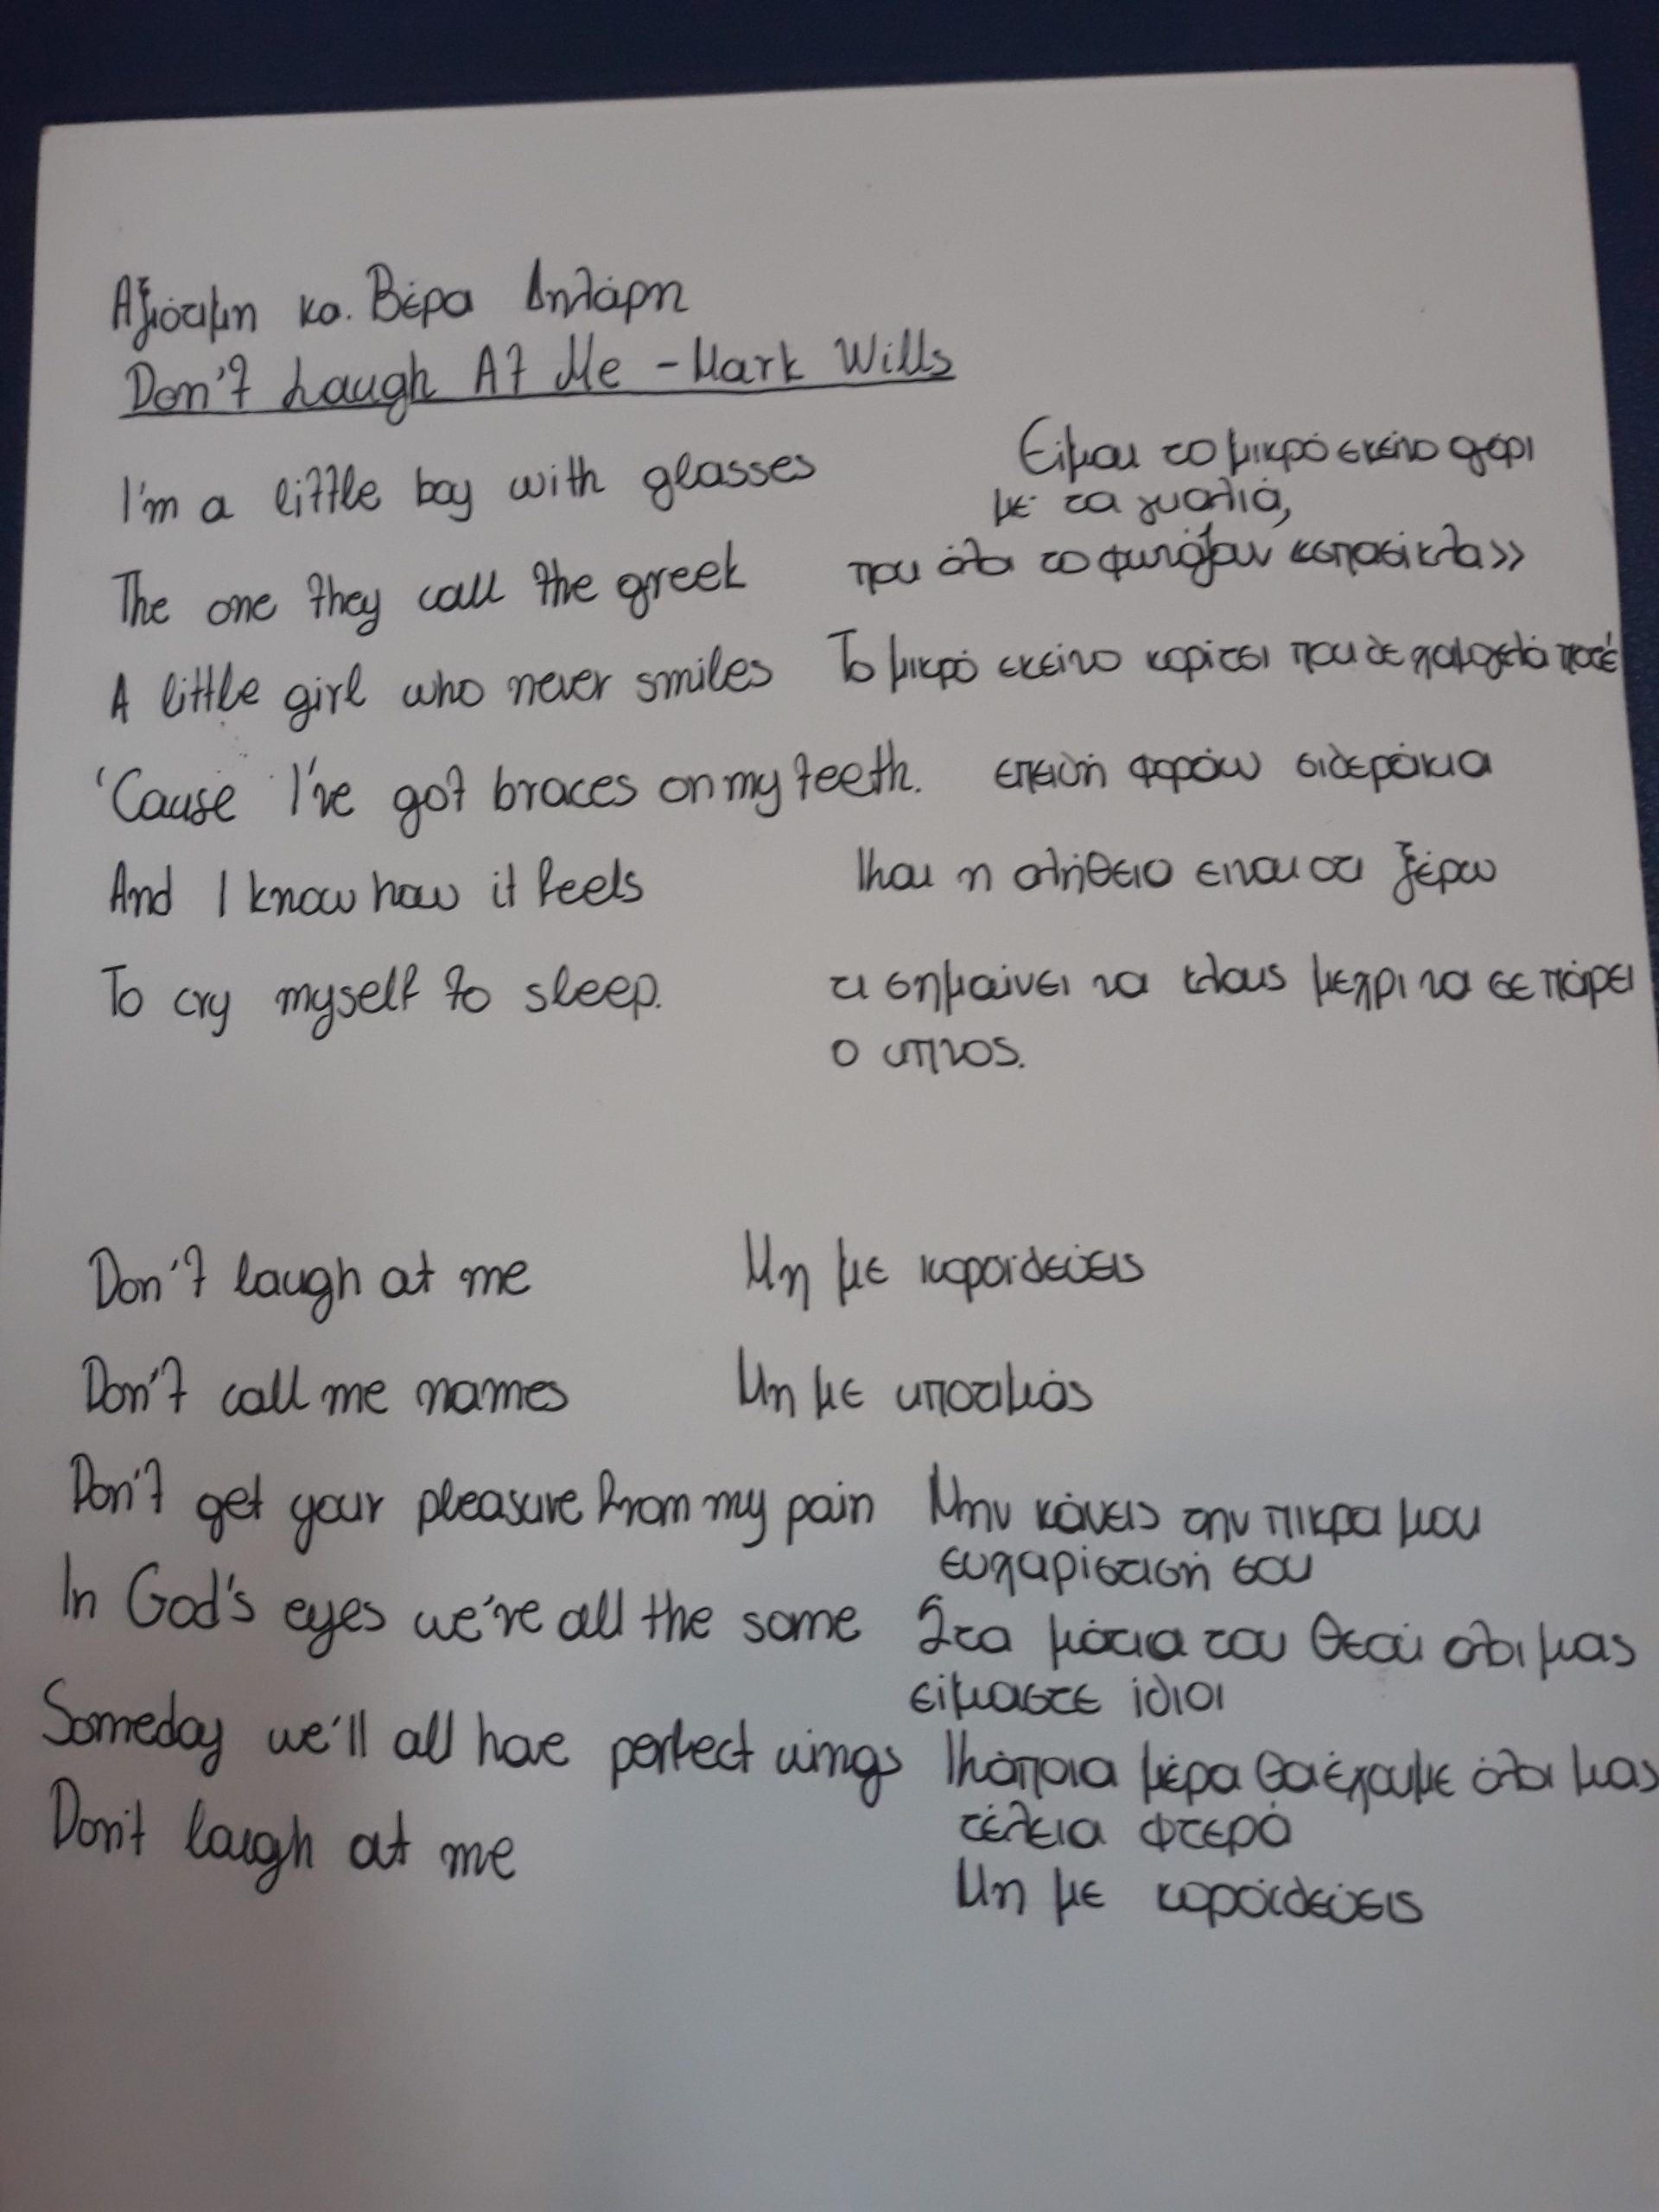 Αξιότιμη κα. Βέρα Δηλάρη
Don't Laugh At Me - Mark Wills
I'm a little boy with glasses Είμαι το μικρό εκείνο αγόρι
με τα γυαλιά,
The one they call the greek που όλοι το φωνάζουν <<σπασίκλα>>
A little girl who never smiles Το μικρό εκείνο κορίτσι που δε χαμογελά ποτέ
'Cause I've got braces on my teeth. επειδή φοράω σιδεράκια
And I know how it feels Και η αλήθεια ειναι οτι ξέρω
To cry myself to sleep. τι σημαίνει να κλαις μεχρι να σε πάρει
ο υπνος.
Don't laugh at me Μη με κοροϊδεύεις
Don't call me names Μη με υποτιμάς
Don't get your pleasure from my pain Μην κάνεις την πικρα μου
ευχαρίστισή σου
In God's eyes we're all the same Στα μάτια του Θεού ολοι μας
είμαστε ίδιοι
Someday we'll all have perfect wings Κάποια μέρα θα έχουμε όλοι μας
τέλεια φτερά
Don't laugh at me
Μη με κοροϊδεύεις